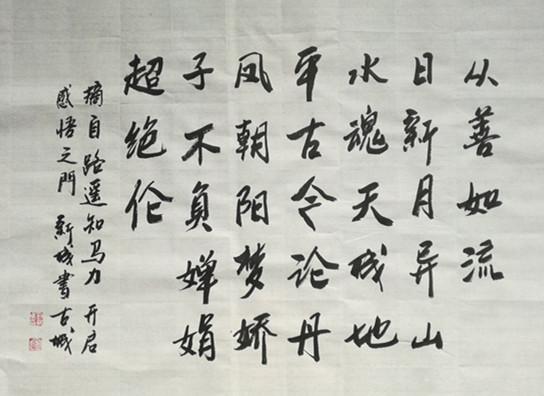 从善如流
日新月异山
水魂天成地
平古今论丹
凤朝阳梦娇
子不负婵娟
超绝伦
摘自路遥知马力开启
感悟之门新城书古城